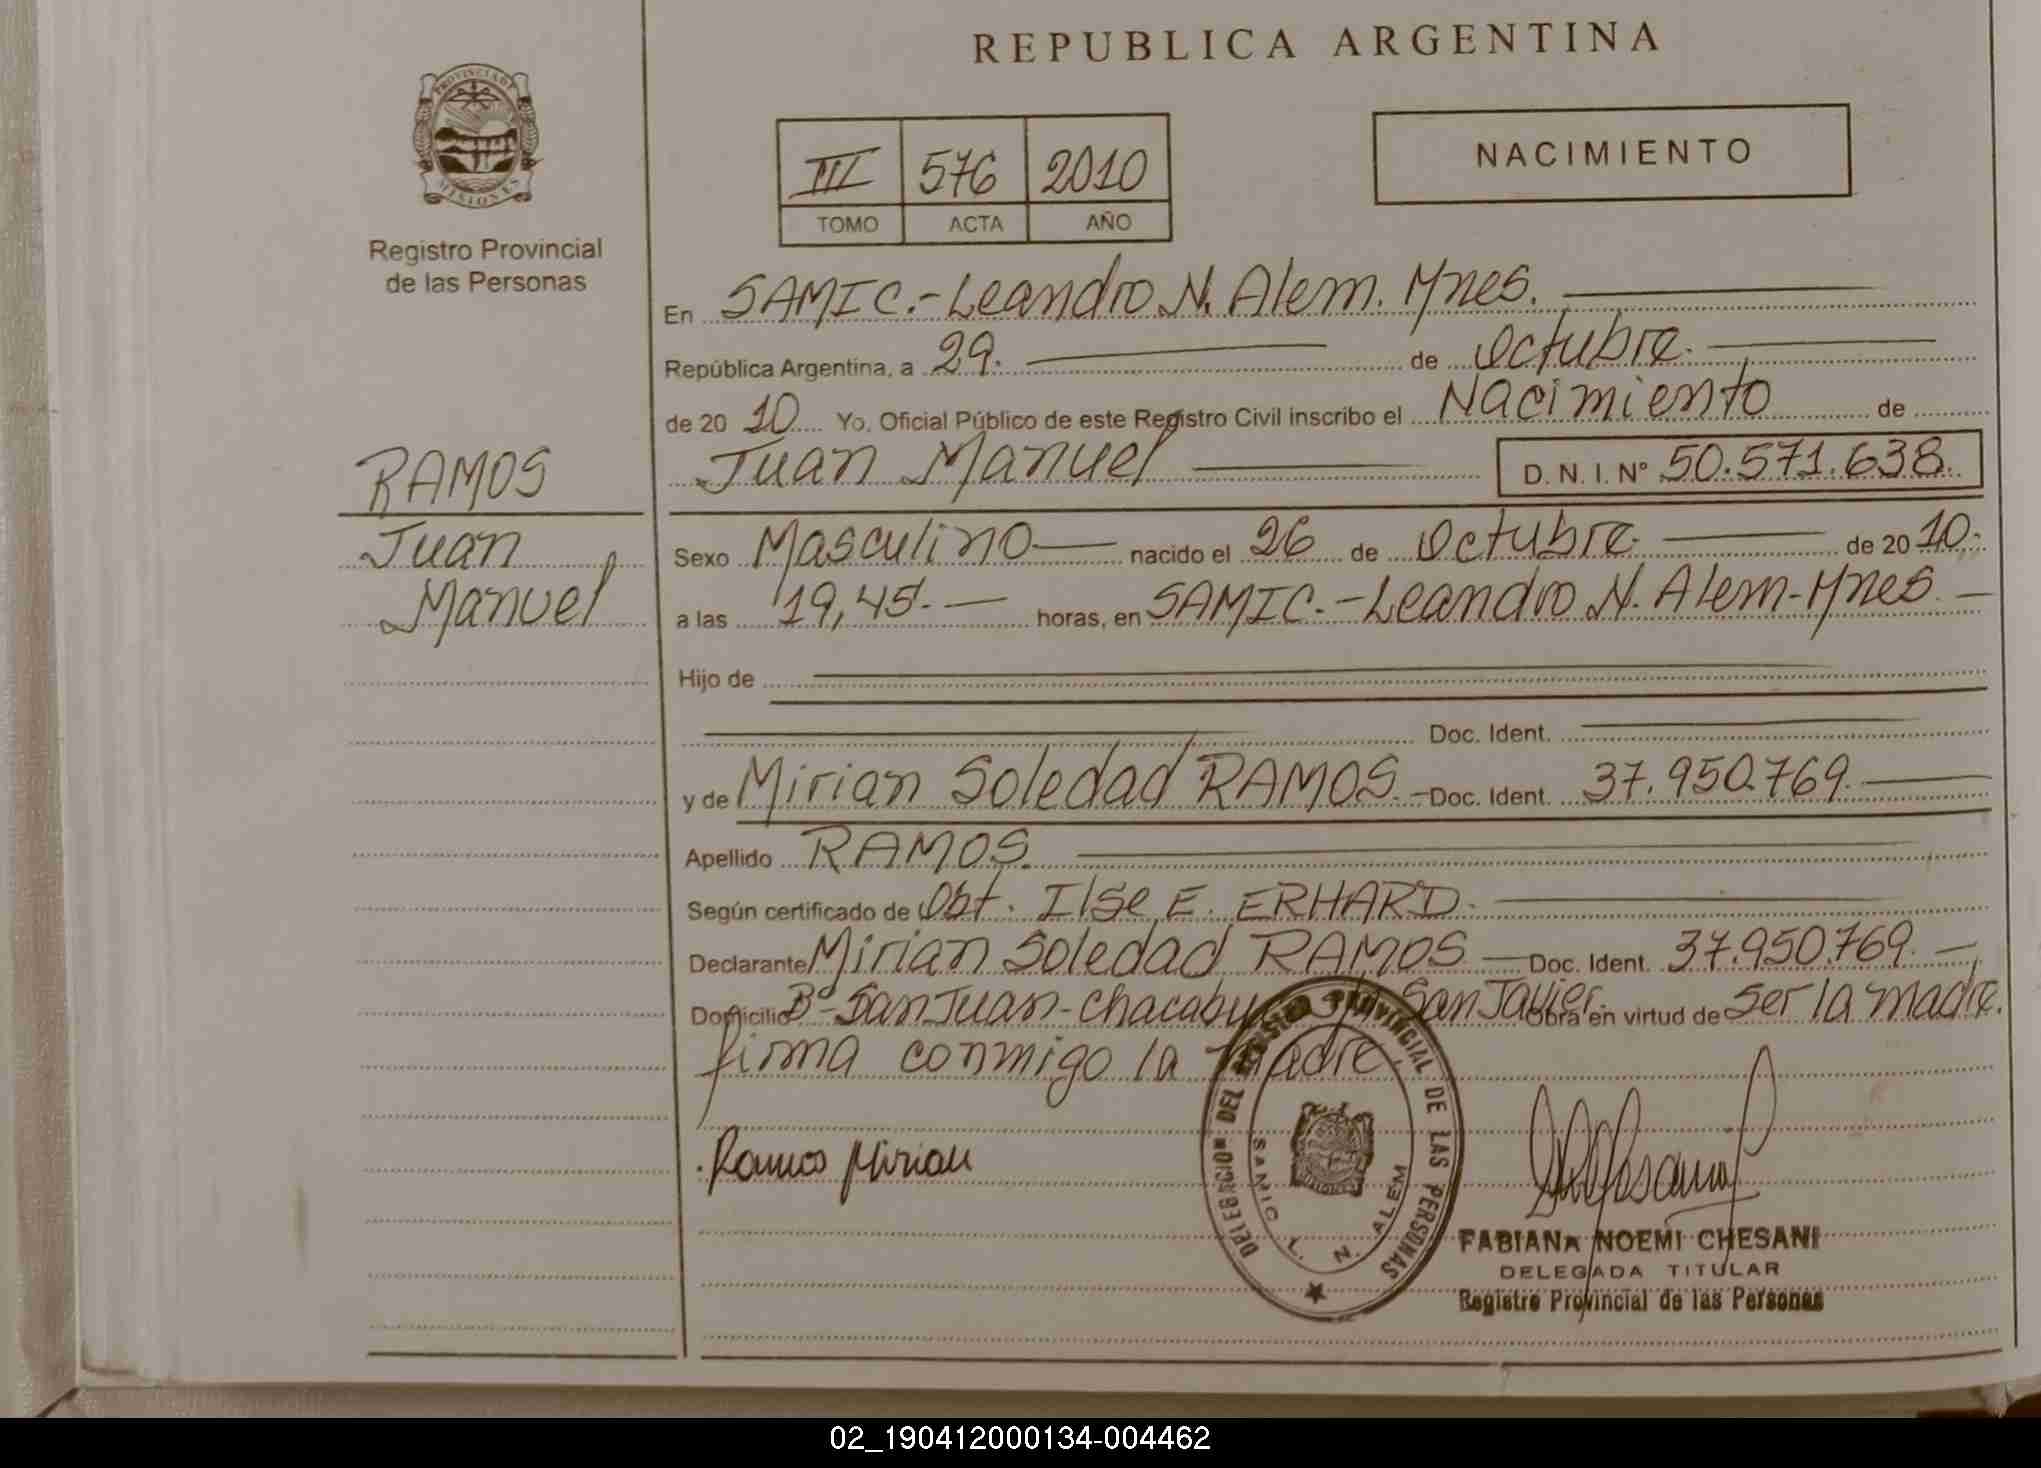 REPUBLICA ARGENTINA
PROVINCIA DE MISIONES
Registro Provincial
de las Personas
III 576 2010
TOMO ACTA AÑO
NACIMIENTO
En SAMIC.-Leandro N. Alem. Mnes.
República Argentina, a 29. de Octubre.
de 20 10 Yo, Oficial Público de este Registro Civil inscribo el Nacimiento de
Juan Manuel D. N. I. Nº 50.571.638.
RAMOS
Juan
Manuel
Sexo Masculino nacido el 26 de Octubre de 20 10.
a las 19,45.- horas, en SAMIC.-Leandro N. Alem-Mnes.
Hijo de
Doc. Ident.
y de Mirian Soledad RAMOS.- Doc. Ident. 37.950.769.
Apellido RAMOS.
Según certificado de Obt. Ilse E. ERHARD.
Declarante Mirian Soledad RAMOS Doc. Ident. 37.950.769.-
Domicilio Bº-San Juan-Chacabuco S/N San Javier. Obra en virtud de Ser la madre.
firma conmigo la madre.
Ramos Mirian
DELEGACION DEL REGISTRO PROVINCIAL DE LAS PERSONAS
SAMIC L. N. ALEM
FABIANA NOEMI CHESANI
DELEGADA TITULAR
Registro Provincial de las Personas
02_190412000134-004462